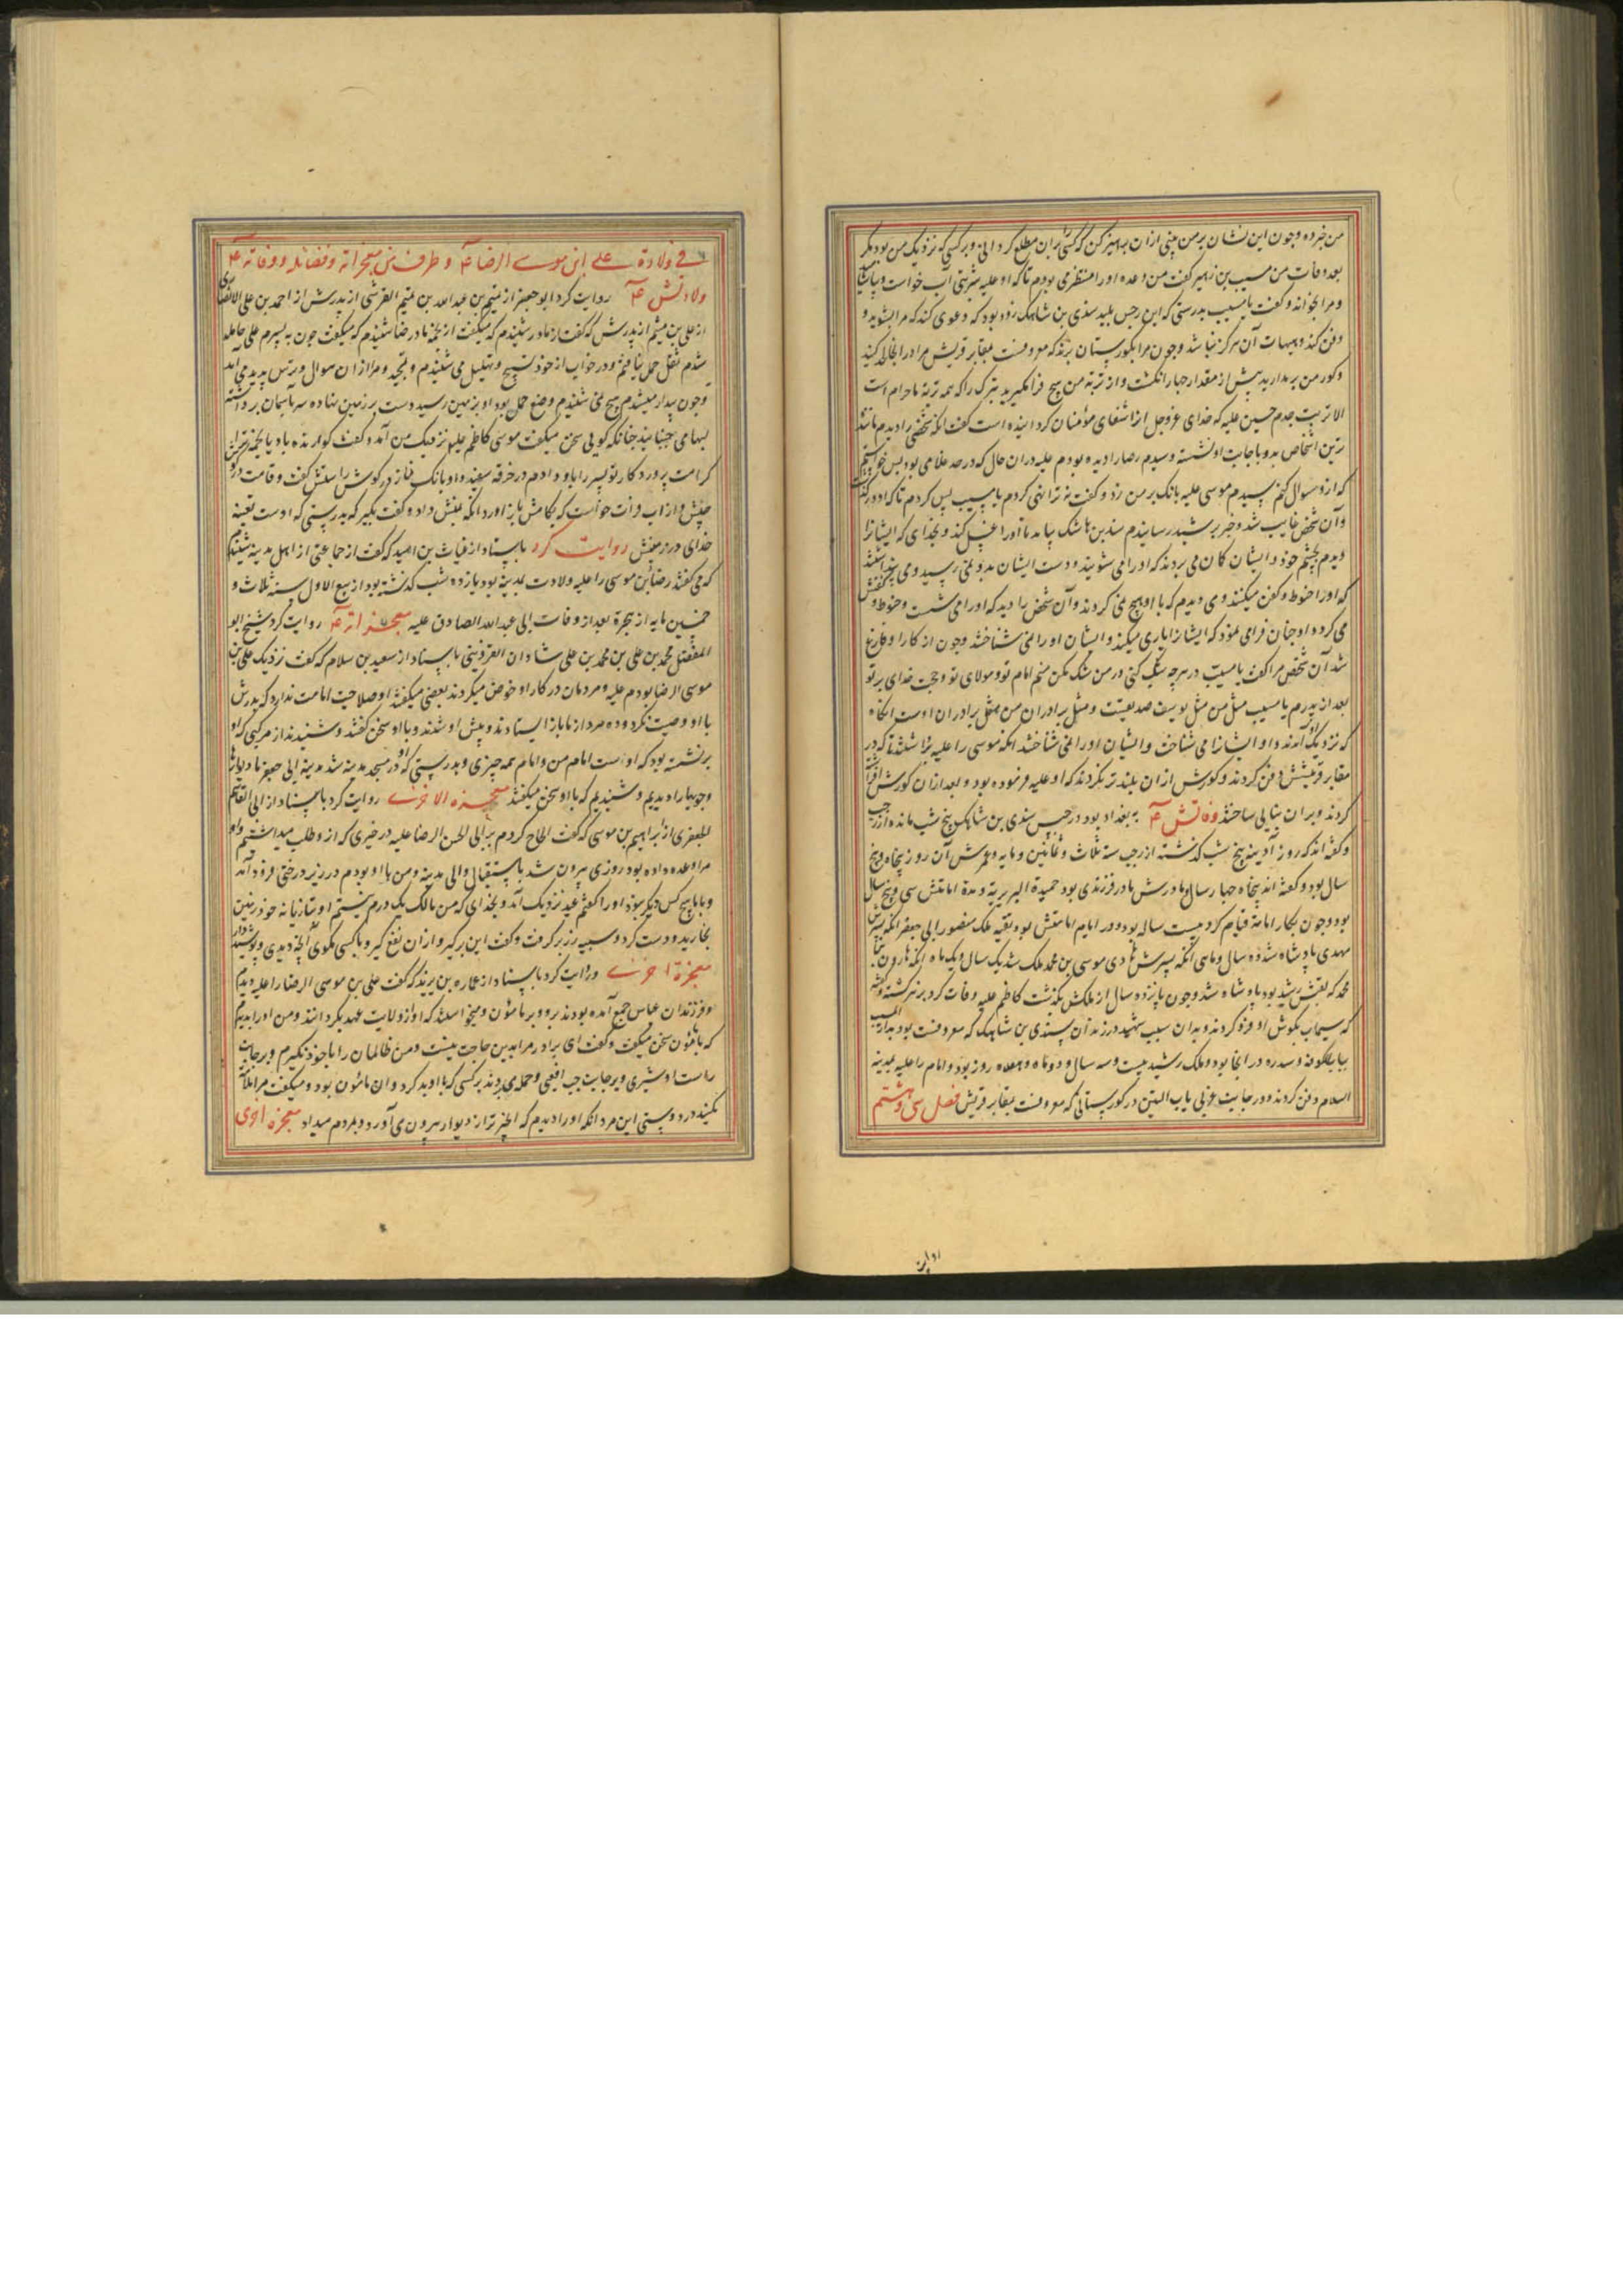 من خبر ده و چون این نشان بر من بینی از آن بپرهیز کن که کسی را بر آن مطلع کردانی و بر کسی که نزدیک من بود مکر
بعد وفات من مسیب بن زهیر کفت من وعده او را منتظر می بودم تا که او علیه شربتی آب خواست و بیاشامید
و مرا بخواند و کفت یا مسیب بدرستی که این رجس پلید سندی بن شاهک زود بود که دعوی کند که مرا بشوید و
دفن کند و هیهات آن هرکز نباشد و چون مرا بکورستان برند که معروفست بمقابر قریش مرا در آنجا لحد کنید
و کور من بر مدارید بیش از مقدار چهار انکشت و از تربه من هیچ فرا مکیرید بتبرک را که همه تربه ما حرام است
الا تربت جدم حسین علیه که خدای عزوجل آنرا شفای مؤمنان کردانیده است کفت انکه شخصی را دیدم مانند
ترین اشخاص بدو با جانب او نشسته و سیدم رضا را دیده بودم علیه در آن حال که در حد غلامی بود پس خواستم
که ازو سوال کنم سیدم موسی علیه بانک بر من زد و کفت نه ترا نهی کردم یا مسیب پس کردم تا که او در کذشت
و آن شخص غایب شد و خبر برشید رسانیدم سندی بن شاهک بیامد تا او را غسل کند و بخدای که ایشانرا
دیدم بچشم خود و ایشان کمان می بردند که او را می شویند و دست ایشان بدو نمی رسید و می پنداشتند
که او را حنوط و کفن میکنند و می دیدم که با او هیچ نمی کردند و آن شخص را دید که او را می شست و حنوط و کفنش
می کرد و او چنان فرا می نمود که ایشانرا یاری میکند و ایشان او را نمی شناختند و چون از کار او فارغ
شد آن شخص مرا کفت یا مسیب در هر چه شک کنی در من شک مکن منم امام تو و مولای تو و حجت خدای بر تو
بعد از پدرم یا مسیب مثل من مثل یوسف صدیقست و مثل برادران من مثل برادران اوست انکاه
که نزدیک او آمدند و او ایشانرا می شناخت و ایشان او را نمی شناختند انکه موسی را علیه برداشتند تا که در
مقابر قریشش دفن کردند و کورش از آن بلند تر نکردند که او علیه فرموده بود و بعد از آن کورش افراشته
کردند و بر آن بنایی ساختند وفاتش ع به بغداد بود در حبس سندی بن شاهک پنج شب مانده از رجب
و کفته اند که روز آدینه پنج شب کذشته از رجب سنه ثلاث و ثمانین و مایه و عمرش آن روز پنجاه و پنج
سال بود و کفته اند پنجاه چهار سال و مادرش مادر فرزندی بود حمیدة البربریه و مدة امامتش سی و پنج سال
بود و چون بکار امامة قیام کرد بیست ساله بود و در ایام امامتش بود بقیه ملک منصور ابی جعفر انکه پسرش
مهدی پادشاه شد ده سال و ماهی انکه پسرش هادی موسی بن محمد ملک شد یک سال و یک ماه انکه هارون بن
محمد که لقبش رشید بود پادشاه شد و چون پانزده سال از ملکش بکذشت کاظم علیه وفات کرد بزهر کشته و کفته
که سیماب بکوش او فرو کردند و بدان سبب شهید در زندان سندی بن شاهک که معروفست بود بدار المسیب
بباب الکوفه و سدره در آنجا بود و ملک رشید بیست و سه سال و دو ماه و هفده روز بود و امام را علیه بمدینه
السلام دفن کردند در جانب غربی باب التین در کورستانی که معروفست بمقابر قریش فصل سی و هشتم
فی ولادة علی ابن موسی الرضا ع و طرف من معجزاته و فضائله و وفاته ع
ولادتش ع روایت کرد ابو جعفر از تمیم بن عبدالله بن تمیم القرشی از پدرش از احمد بن علی الانصاری
از علی بن میثم از پدرش که کفت از مادر شنیدم که میکفت از نجمه مادر رضا شنیدم که میکفت چون به پسرم علی حامله
شدم ثقل حمل نیافتم و در خواب از خود تسبیح و تهلیل می شنیدم و تمجید و مرا از آن سوال و ترس پدید می آمد
و چون بیدار میشدم هیچ نمی شنیدم و وضع حمل بود او بزمین رسید دست بر زمین نهاده سر بآسمان برداشته
لبها می جنبانید چنانکه کویی سخن میکفت موسی کاظم علیه نزدیک من آمد و کفت کوارنده باد یا نجمه ترا این
کرامت پروردکار تو پسر را باو دادم در خرقه سفید و او بانک نماز در کوش راستش کفت و قامت در کوش
چپش و از آب فرات خواست که بکامش باز آورد انکه بمنش داد و کفت بکیر که بدرستی که اوست بقیه
خدای در زمینش روایت کرد باسناد از غیاث بن اسید که کفت از جماعتی از اهل مدینه شنیدم
که می کفتند رضا بن موسی را علیه ولادت بمدینه بود یازده شب کذشته بود از ربیع الاول سنه ثلاث و
خمسین مایه از هجرة بعد از وفات ابی عبدالله الصادق علیه معجزاته ع روایت کرد شیخ ابو
المفضل محمد بن علی بن محمد بن علی شادان القزوینی باسناد از سعید بن سلام که کفت نزدیک علی بن
موسی الرضا بودم علیه و مردمان در کار او خوض میکردند بعضی میکفتند او صلاحیت امامت ندارد که پدرش
با او وصیت نکرد و ده مرد از ما باز ایستادند و پیش او شدند و با او سخن کفتند و شنیدند از مرکبی که او
بر نشسته بود که اوست امام من و امام همه چیزی و بدرستی که او در مسجد مدینه شد مدینه ابی جعفر ما دیوارها
و چوبها را دیدیم و شنیدیم که با او سخن میکفتند معجزه الاخری روایت کرد باسناد از ابی القاسم
الجعفری از ابراهیم بن موسی که کفت الحاح کردم بر ابی الحسن الرضا علیه در خیری که ازو طلب میداشتم و او
مرا وعده داده بود روزی بیرون شد باستقبال والی مدینه و من با او بودم در زیر درختی فرود آمد
و با ما هیچ کس دیکر نبود او را کفتم عید نزدیک آمد و بخدای که من مالک یک درم نیستم او بتازیانه خود زمین
بخارید و دست کرد و سبیکه زر بر کرفت و کفت این بر کیر و از آن نفع کیر و با کسی مکوی آنچه دیدی و پوشیده دار
معجزة اخری و روایت کرد باسناد از عماره بن یزید که کفت علی بن موسی الرضا را علیه دیدم
و فرزندان عباس جمع آمده بودند برو و بر مامون و میخواستند که او از ولایت عهد بکردانند و من او را دیدم
که با مامون سخن میکفت و کفت ای برادر مرا بدین حاجت نیست و من ظالمان را با خود نکیرم و بر جانب
راست او شیری و بر جانب چپ افعی و حمله می بردند بر کسی که با او بد کرد و آن مامون بود و میکفت مرا ملامت
نکنید در دوستی این مرد انکه او را دیدم که انجیر تر از دیوار بیرون می آورد و بمردم میداد معجزه اخری